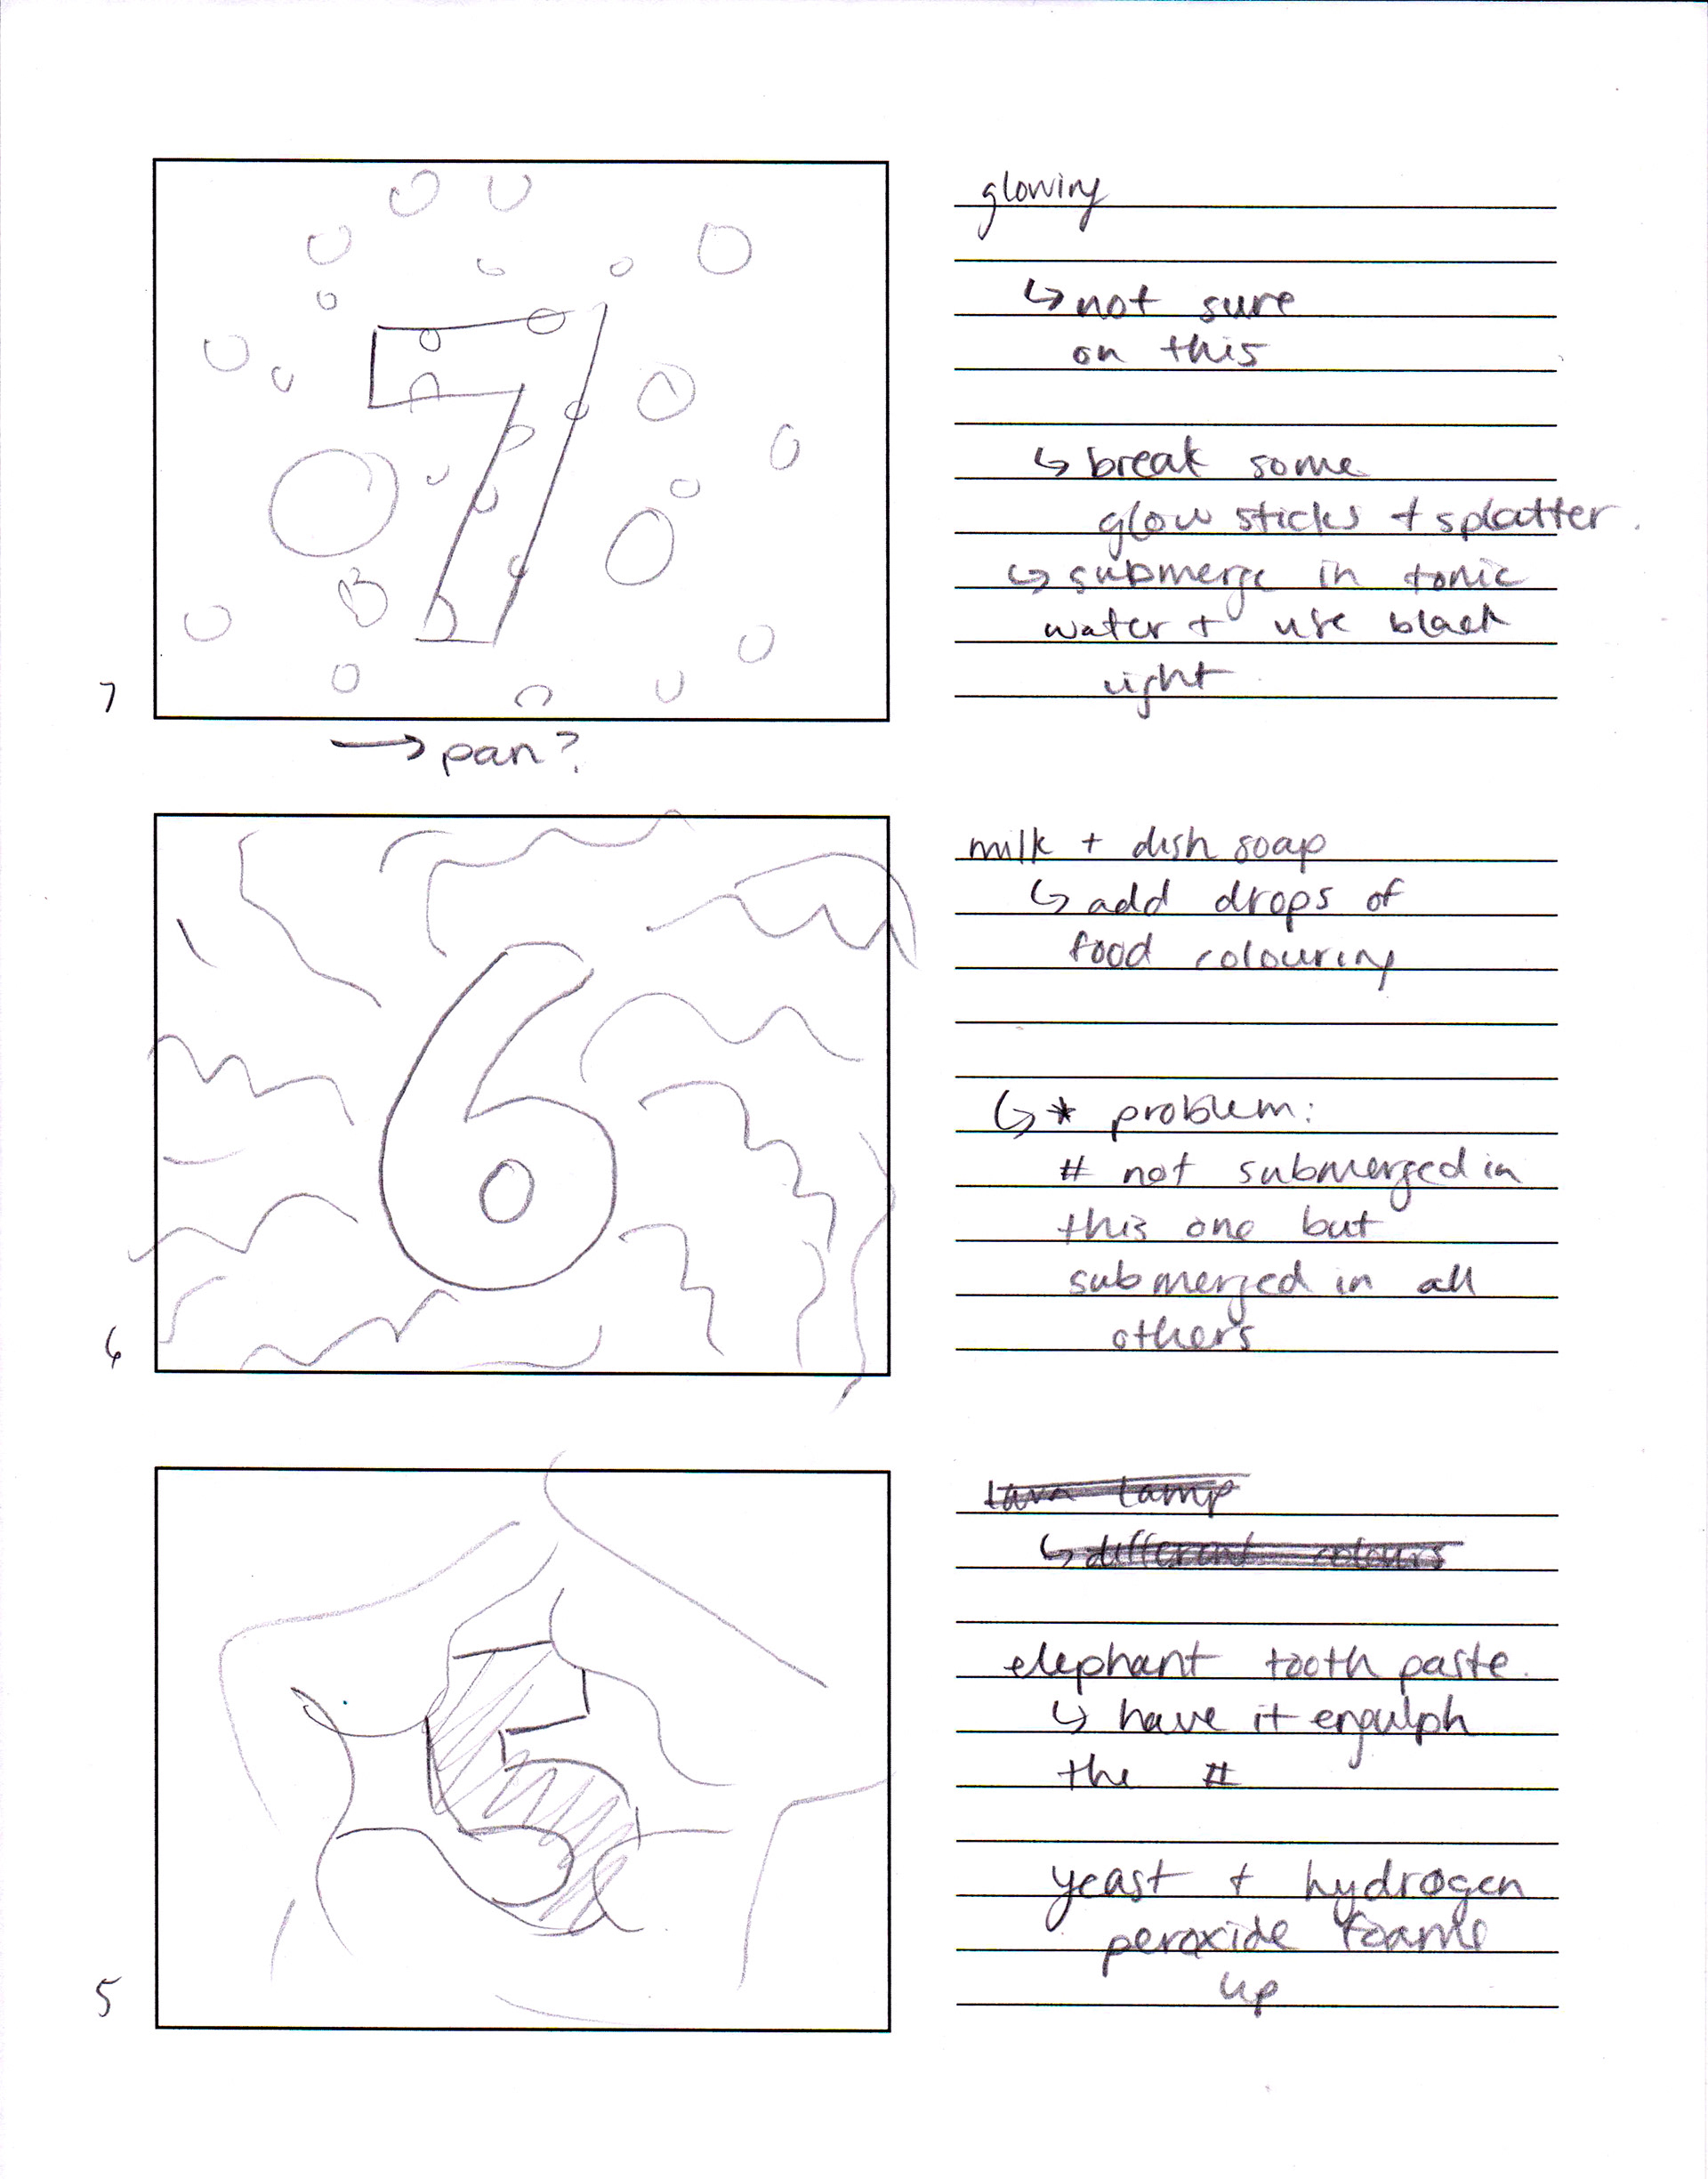 7
glowing
↳ not sure
on this
↳ break some
glow sticks + splatter.
↳ submerge in tonic
water + use black
light
7
→ pan?
6
milk + dish soap
↳ add drops of
food colouring
↳ * problem:
# not submerged in
this one but
submerged in all
others
6
5
lava lamp
↳ different colours
elephant tooth paste.
↳ have it engulph
the #
yeast + hydrogen
peroxide foame
up
5